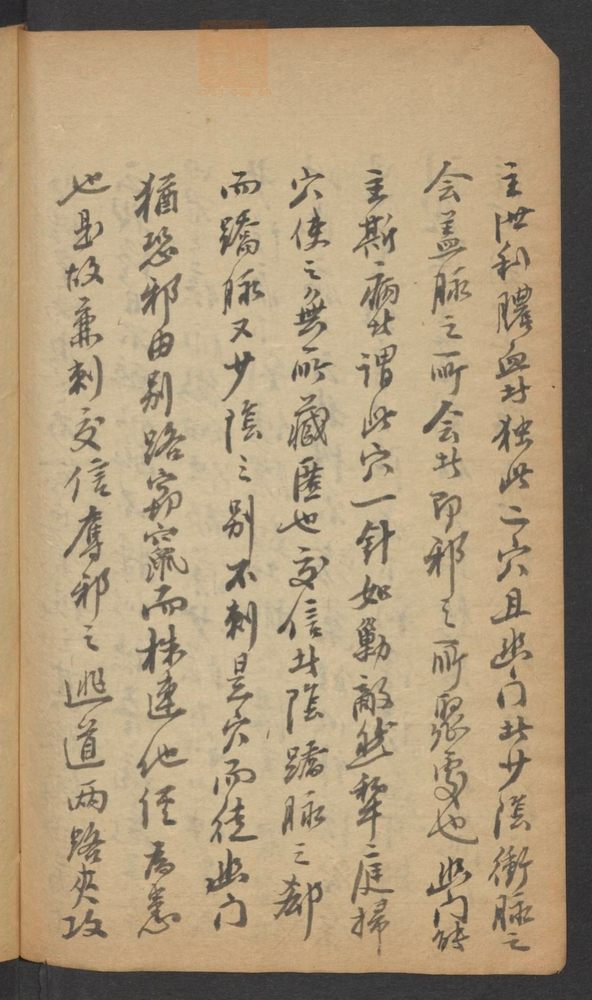 主泄利膿血者独此二穴且幽门者少陰衝脉之
会盖脉之所会者即邪之所聚處也幽门能
主斯病者謂此穴一針如勦敵然犂庭掃
穴使之無所藏匿也交信者陰蹻脉之郄
而蹻脉又少陰之别不刺是穴而徒幽门
猶恐邪由别路窃竄而株連他俓為患
也是故兼刺交信奪邪之逃道两路夾攻